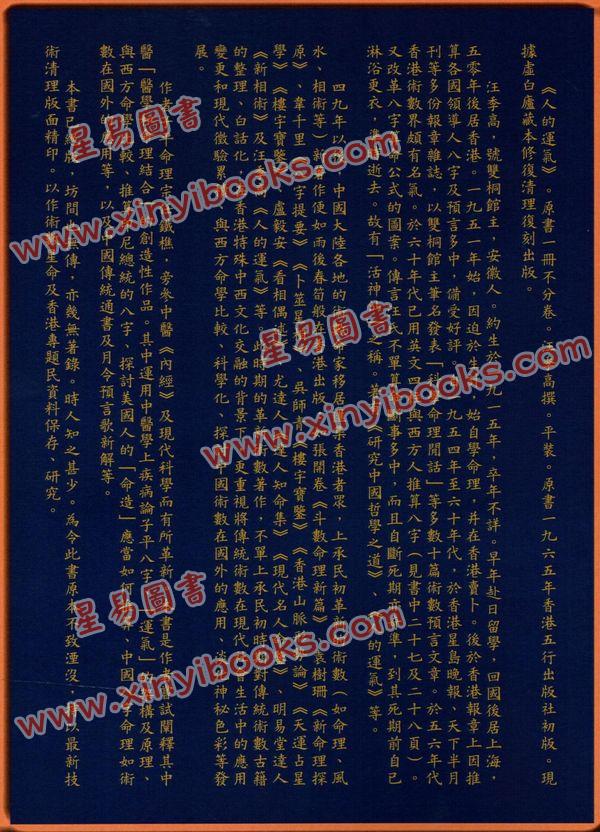 《人的運氣》。原書一冊不分卷。汪季高撰。平裝。原書一九六五年香港五行出版社初版。現
據虛白廬藏本修復清理復刻出版。
汪季高，號雙桐館主，安徽人。約生於一九一五年，卒年不詳。早年赴日留學，回國後居上海，
五零年後居香港。一九五一年始，因迫於生 始自學命理，并在香港賣卜。後於香港報章上因推
算各國領導人八字及預言多中，備受好評。 九五四年至六十年代，於香港星島晚報、天下半月
刊等多份報章雜誌，以雙桐館主筆名發表「科 命理閒話」等多數十篇術數預言文章。於五六年代
香港術數界頗有名氣。於六十年代已用英文四 與西方人推算八字（見書中二十七及二十八頁）。
又改革八字 命公式的圖案。傳言汪氏不單算 事多中，而且自斷死期亦 準，到其死期前自己
淋浴更衣， 逝去。故有「活神 之稱。著 《研究中國哲學之道》、 的運氣》等。
四九年以 中國大陸各地的 家移居 香港者眾，上承民初革新 術數（如命理、風
水、相術等）新 作便如雨後春筍般在 港出版 張開卷《斗數命理新篇》 袁樹珊《新命理探
原》、韋千里 字提要》 《卜筮星 、吳師青《樓宇寶鑒》 《香港山脈形勢論》 《天運占星
學》《樓宇寶鑒 盧毅安《看相偶述 尤達人 達人知命集》 《現代名人 、明易堂達人
《新相術》及汪 《人的運氣》等。此時期的革 術數著作，不單上承民初時 對傳統術數古籍
的整理、白話化， 香港特殊中西文化交融的背景下 更重視將傳統術數在現代 生活中的應用
變更和現代徵驗累 與西方命學比較、科學化、探 國術數在國外的應用、淡化神秘色彩等發
展。
作者 命理宗 鐵樵，旁參中醫《內經》及現代科學而有所革新 書是作者嘗試闡釋其中
醫「醫學 理結合 的創造性作品。其中運用中醫學上疾病論子平八字 運氣」 構及原理、
與西方命學 較、推算 尼總統的八字、探討美國人的「命造」應當如何 算、中國 字命理如術
數在國外的應用等，以及中國傳統通書及月令預言歌新解等。
本書已絕版，坊間 無傳，亦幾無著錄。時人知之甚少。為令此書原本不致湮沒， 以最新技
術清理版面精印。以作術數生命及香港專題民資料保存、研究。
星易圖書
www.xinyibooks.com
星易圖書
www.xinyibooks.com
星易圖書
www.xinyibooks.com